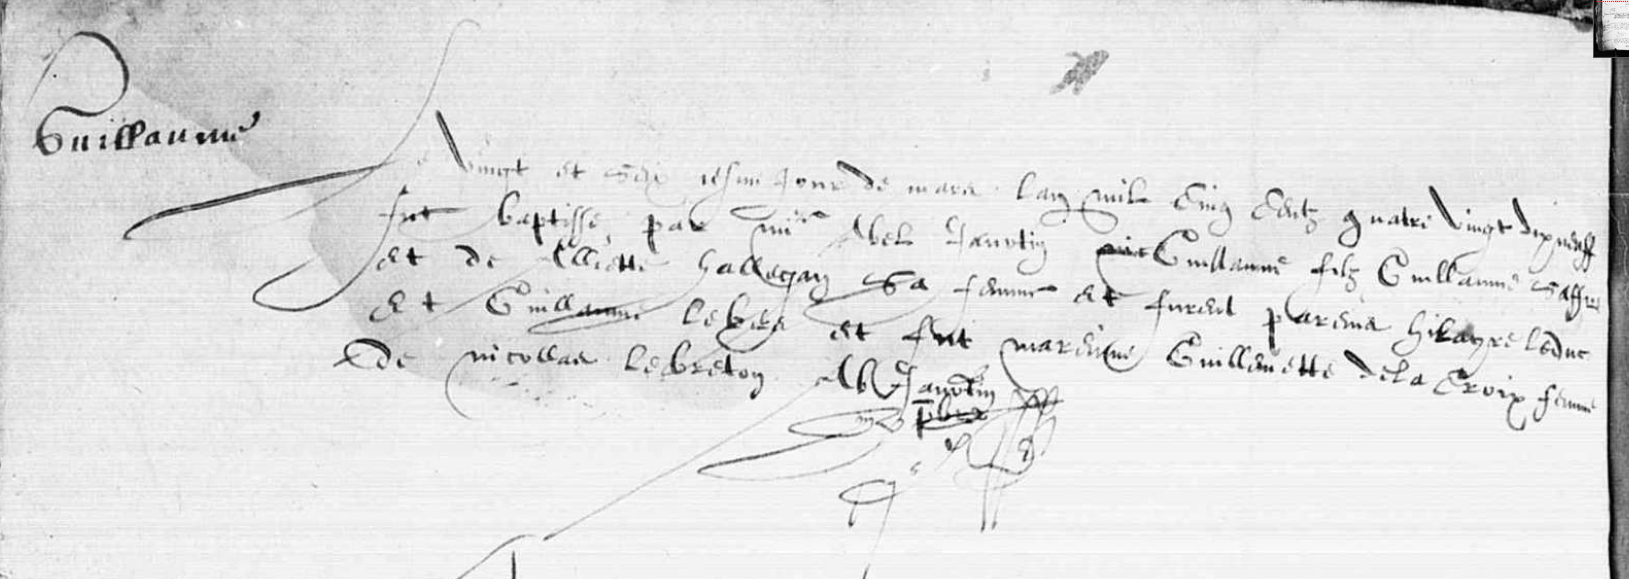 Guillaume
Le vingt et sixiesme jour de mars lan mil cinq centz quatre vingt dix neuff
fut baptisse par Abel Jauvtin Guillaume filz Guillaume Saffre
et de Alliette hallegan sa femme et furent pareins hilayre leduc
Et Guillaume lebres et fut mareine Guillemette de la Croix femme
De nicollas lebreton Ab Jauvtin
pbre